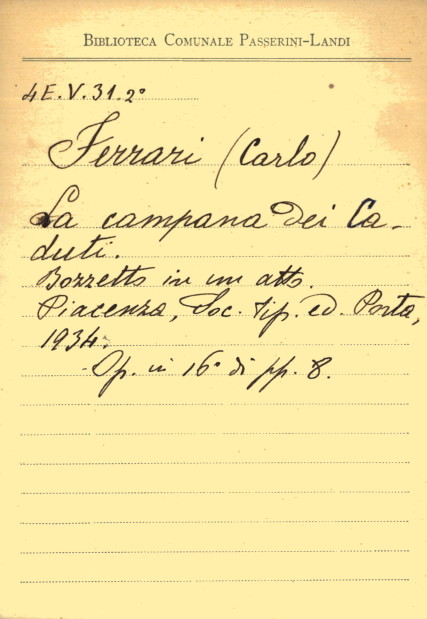 BIBLIOTECA COMUNALE PASSERINI-LANDI
4E.V.31.2°
Ferrari (Carlo)
La campana dei Ca-
duti.
Bozzetto in un atto.
Piacenza, Soc. tip. ed. Porta,
1934.
Op. in 16° di pp. 8.